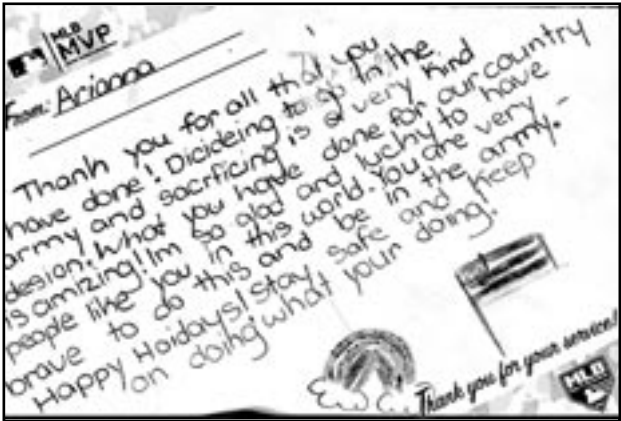 MLB
MVP
From: Arianna
Thank you for all that you
have done! Dicideing to go in the
army and sacrficing is a very kind
desion. What you have done for our country
is amizing! Im so glad and lucky to have
people like you in this world. You are very
brave to do this and be in the army.
Happy Hoidays! Stay safe and keep
on doing what your doing!
Thank you for your service!
MLB